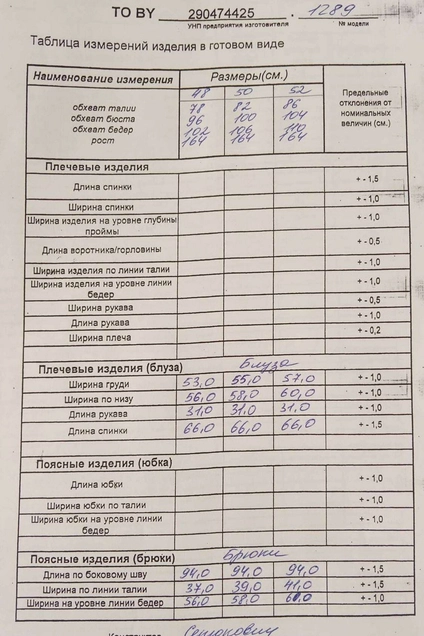 TO BY 290474425 . 1289
УНП предприятия изготовителя № модели
Таблица измерений изделия в готовом виде
Наименование измерения Размеры(см.) Предельные отклонения от номинальных величин (см.)
48 50 52
обхват талии 78 82 86
обхват бюста 96 100 104
обхват бедер 102 106 110
рост 164 164 164
Плечевые изделия
Длина спинки + - 1,5
Ширина спинки + - 1,0
Ширина изделия на уровне глубины проймы + - 1,0
Длина воротника/горловины + - 0,5
Ширина изделия по линии талии + - 1,0
Ширина изделия на уровне линии бедер + - 1,0
Ширина рукава + - 0,5
Длина рукава + - 1,0
Ширина плеча + - 0,2
Плечевые изделия (блуза) Блуза
Ширина груди 53,0 55,0 57,0 + - 1,0
Ширина по низу 56,0 58,0 60,0 + - 1,0
Длина рукава 31,0 31,0 31,0 + - 1,0
Длина спинки 66,0 66,0 66,0 + - 1,5
Поясные изделия (юбка)
Длина юбки + - 1,0
Ширина юбки по талии + - 1,0
Ширина юбки на уровне линии бедер + - 1,0
Поясные изделия (брюки) Брюки
Длина по боковому шву 94,0 94,0 94,0 + - 1,5
Ширина по линии талии 37,0 39,0 41,0 + - 1,0
Ширина на уровне линии бедер 56,0 58,0 60,0 + - 1,0